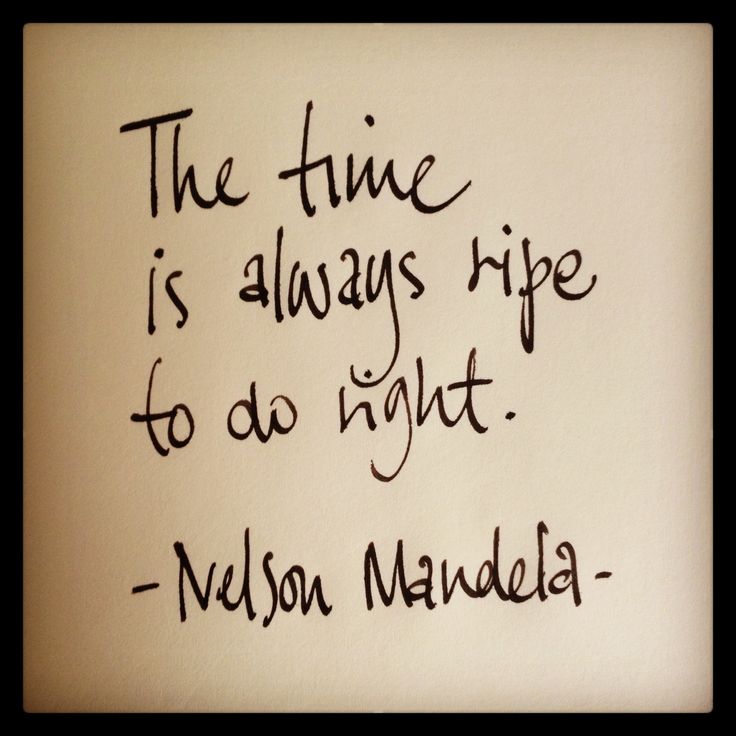 The time
is always ripe
to do right.
- Nelson Mandela -